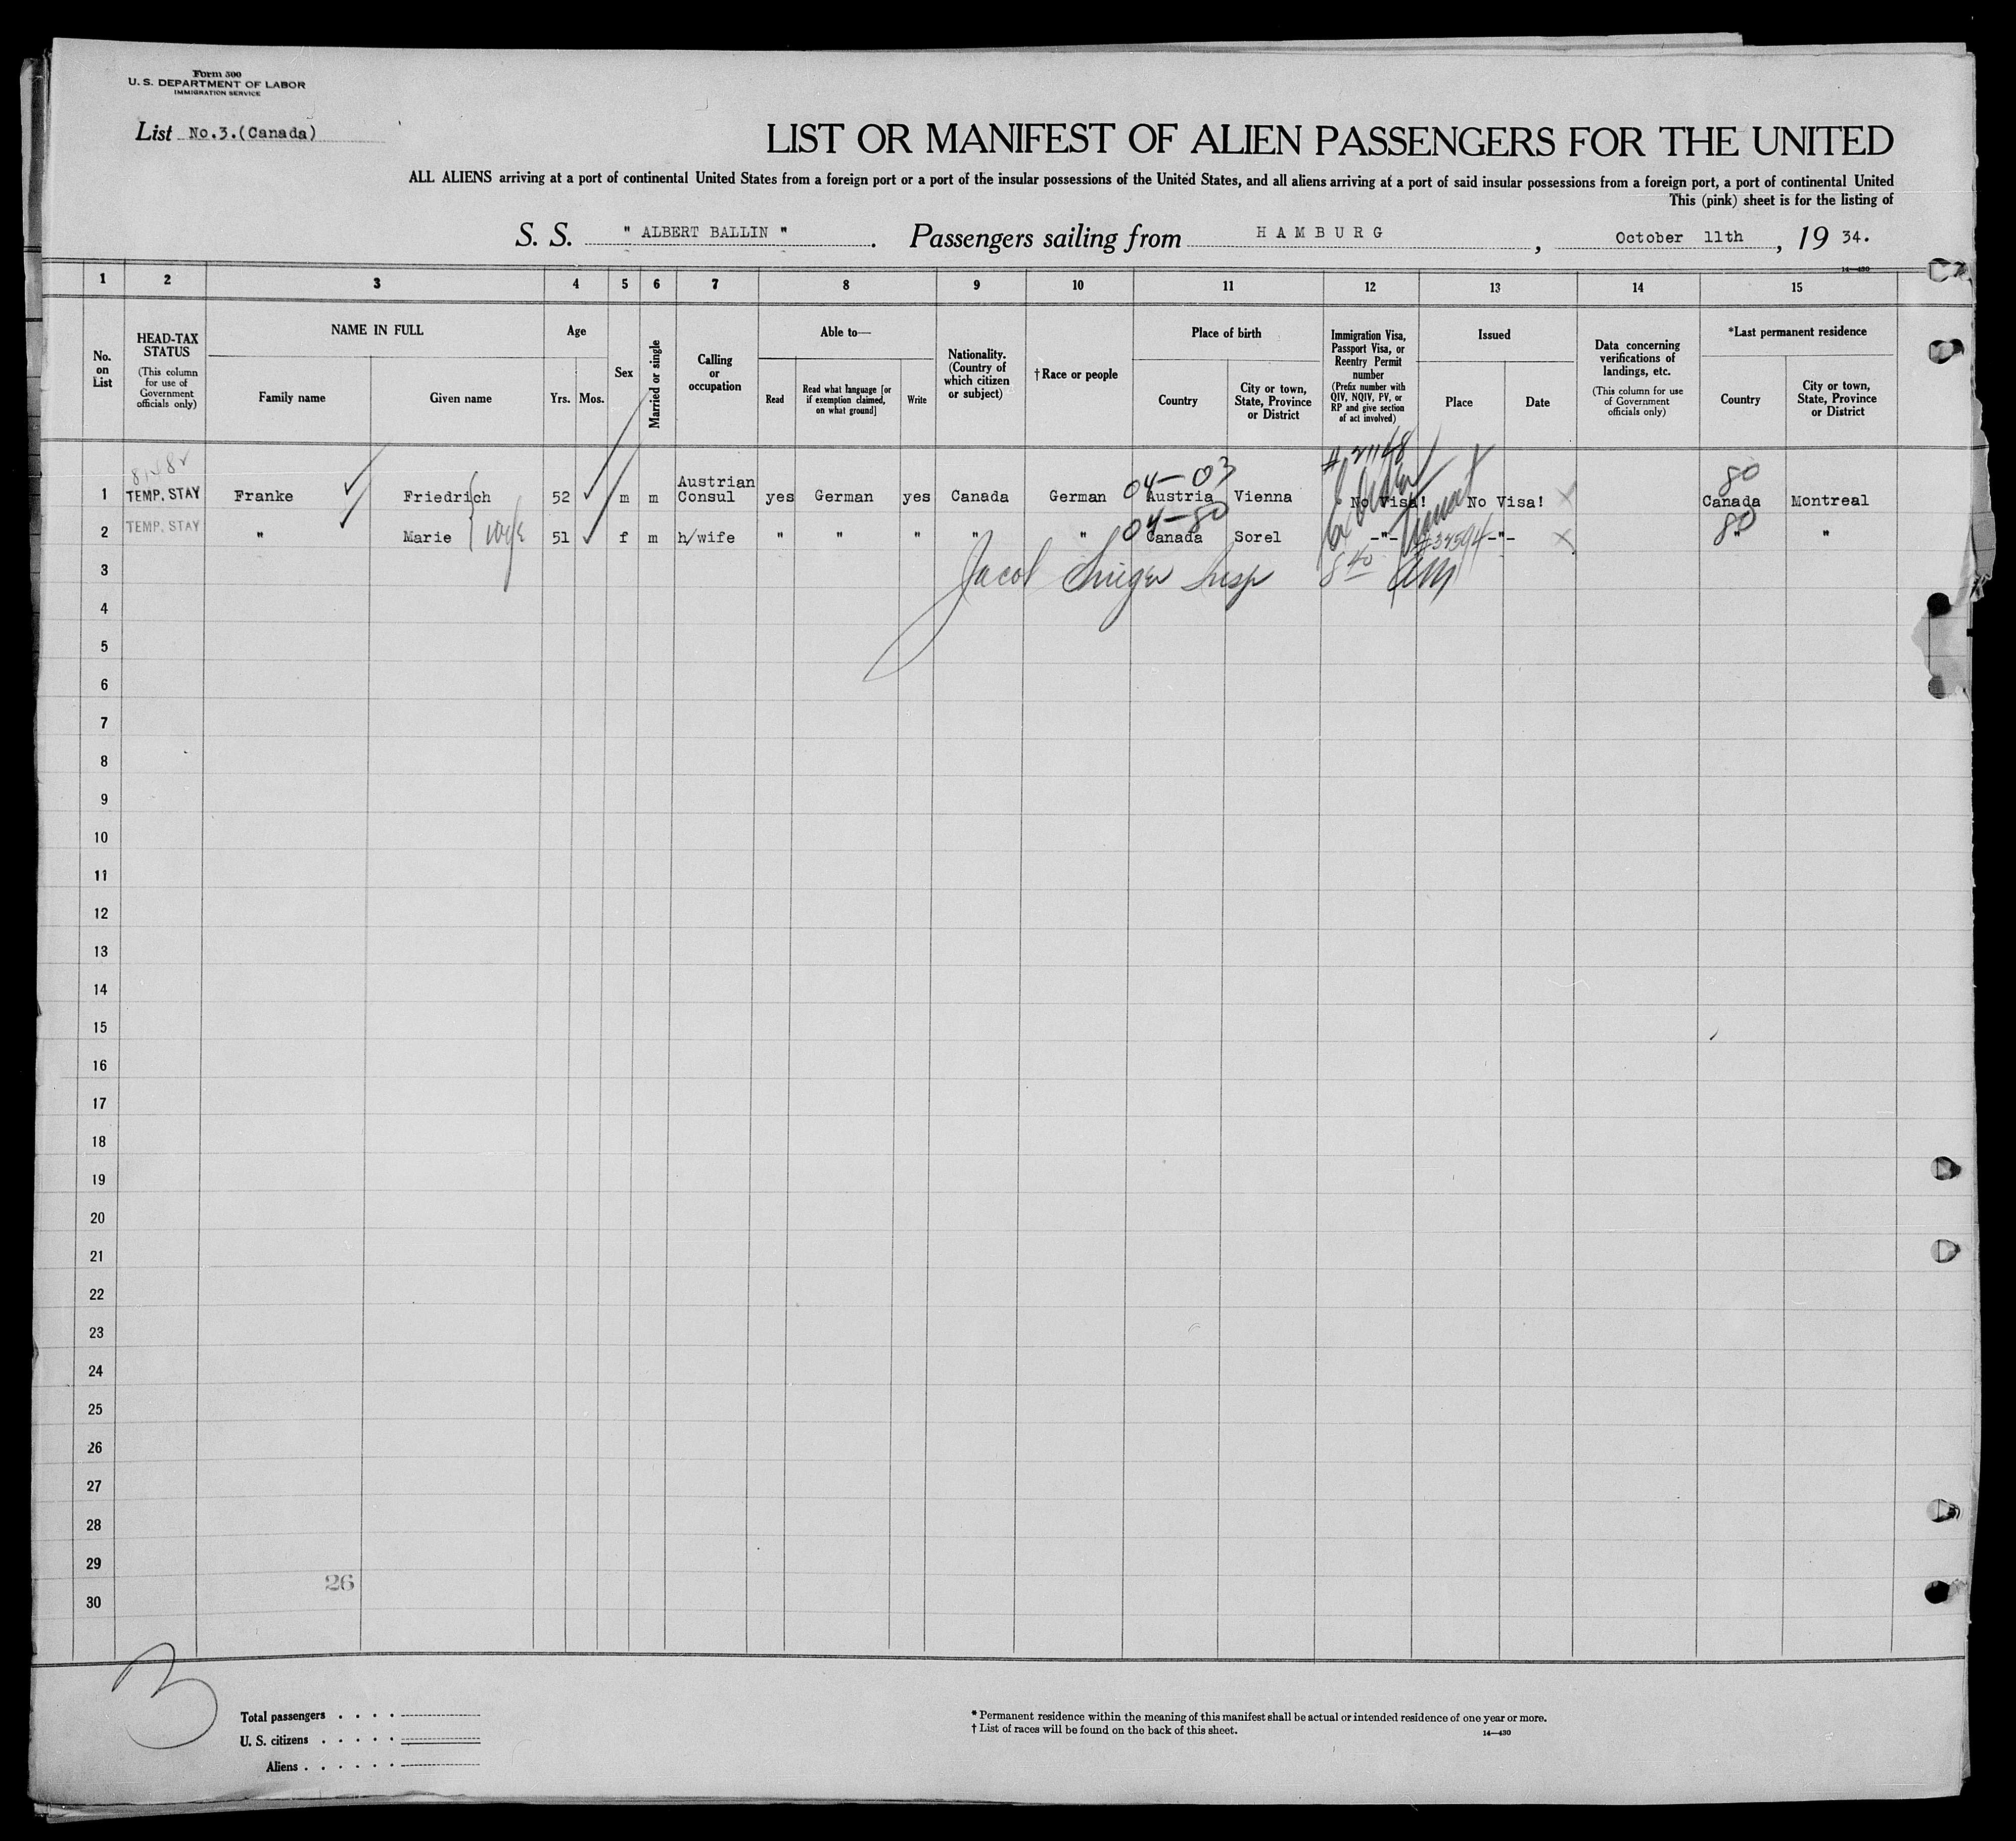 Form 500
U. S. DEPARTMENT OF LABOR
IMMIGRATION SERVICE
List No.3.(Canada)
LIST OR MANIFEST OF ALIEN PASSENGERS FOR THE UNITED
ALL ALIENS arriving at a port of continental United States from a foreign port or a port of the insular possessions of the United States, and all aliens arriving at a port of said insular possessions from a foreign port, a port of continental United
This (pink) sheet is for the listing of
S. S. " ALBERT BALLIN " . Passengers sailing from H A M B U R G , October 11th , 19 34.
14—430
1 2 3 4 5 6 7 8 9 10 11 12 13 14 15
No. on List
HEAD-TAX STATUS
(This column for use of Government officials only)
NAME IN FULL
Family name Given name
Age
Yrs. Mos.
Sex
Married or single
Calling or occupation
Able to—
Read
Read what language [or if exemption claimed, on what ground]
Write
Nationality. (Country of which citizen or subject)
† Race or people
Place of birth
Country
City or town, State, Province or District
Immigration Visa, Passport Visa, or Reentry Permit number
(Prefix number with QIV, NQIV, PV, or RP and give section of act involved)
Issued
Place Date
Data concerning verifications of landings, etc.
(This column for use of Government officials only)
*Last permanent residence
Country
City or town, State, Province or District
# 21148
04-03 80
1 TEMP. STAY Franke Friedrich 52 m m Austrian Consul yes German yes Canada German Austria Vienna No Visa! No Visa! Canada Montreal
Transit
04-80 80
2 TEMP. STAY " Marie wife 51 f m h/wife " " " " " Canada Sorel -"- -"- " "
3 Jacob Insp 8 40 am
4
5
6
7
8
9
10
11
12
13
14
15
16
17
18
19
20
21
22
23
24
25
26
27
28
29
26
30
3
Total passengers . . . .
U. S. citizens . . . . .
Aliens . . . . . .
* Permanent residence within the meaning of this manifest shall be actual or intended residence of one year or more.
† List of races will be found on the back of this sheet.
14—430